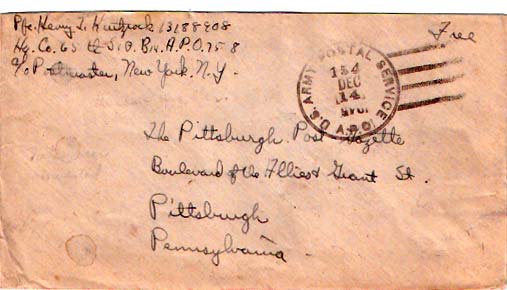 Pfc. Henry I. 13188908
Hq. Co. 65 Bn. A.P.O. 758
c/o Postmaster, New York. N.Y.
Free
U.S. ARMY POSTAL SERVICE
154
DEC
14
A.P.O.
The Pittsburgh Post Gazette
Boulevard of the Allies & Grant St.
Pittsburgh
Pennsylvania